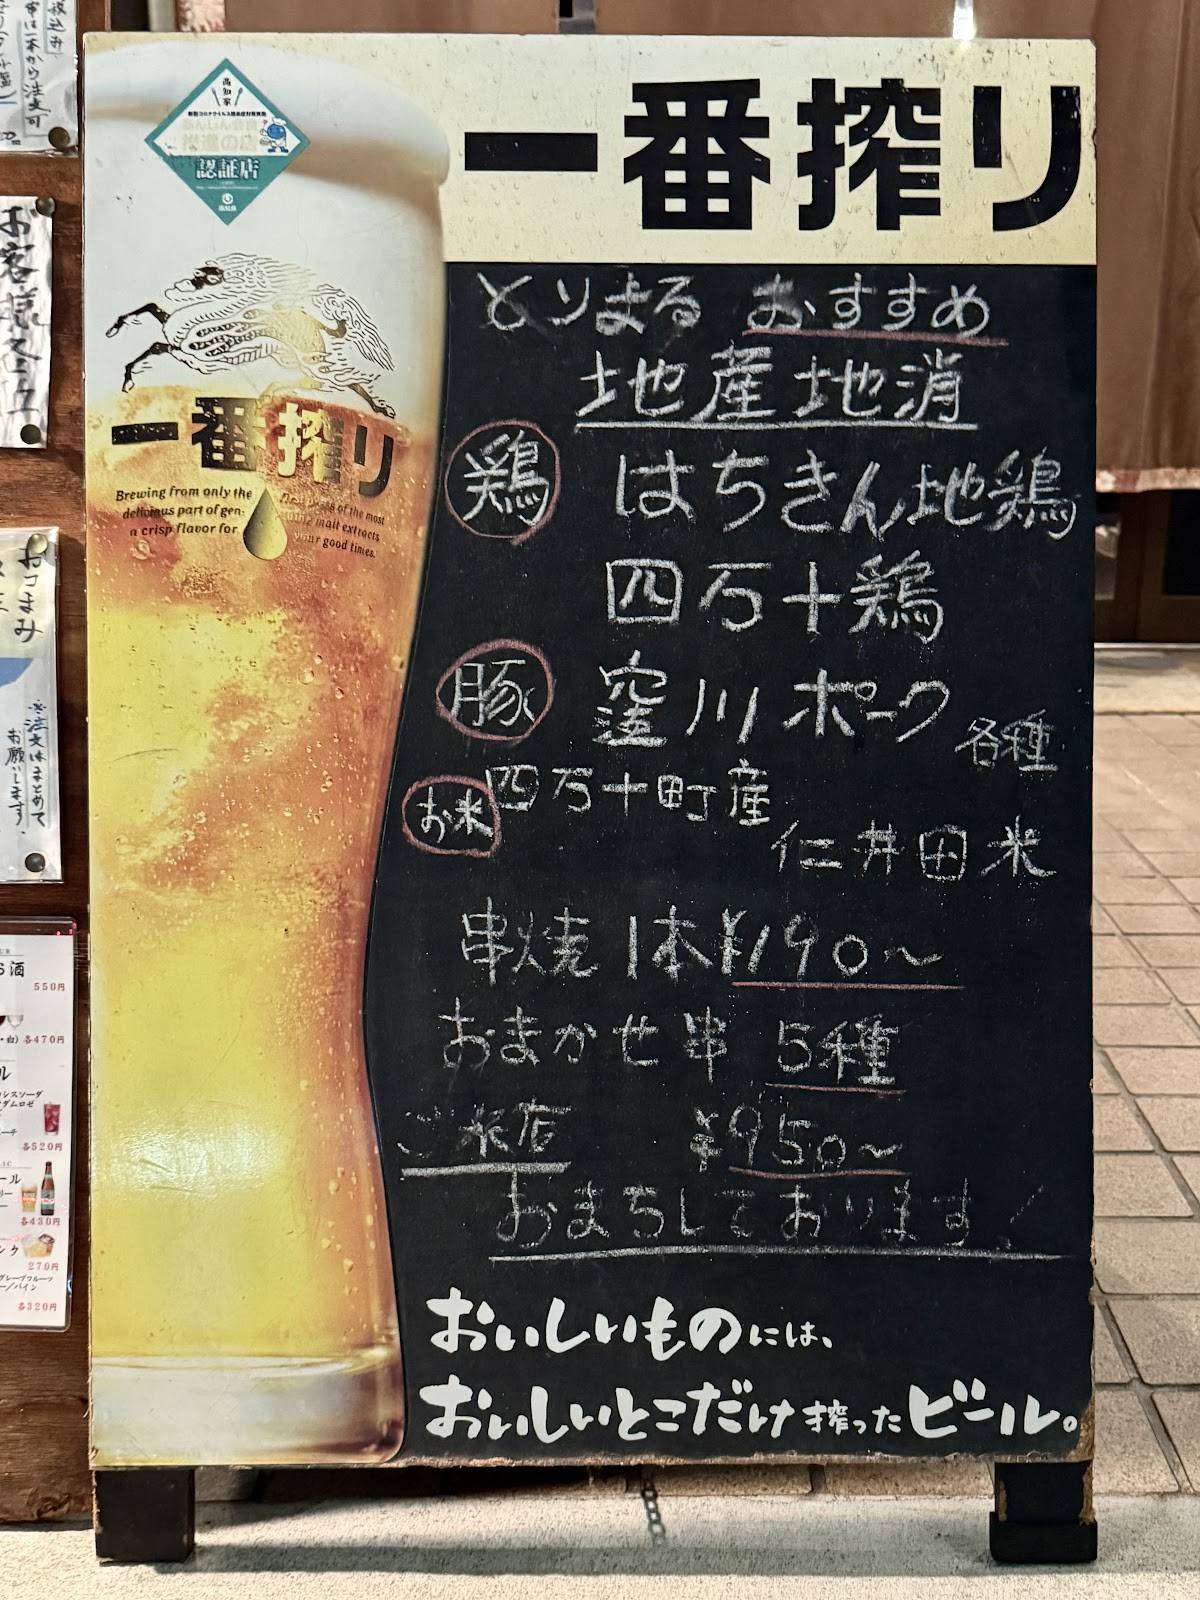 一番搾り
高知家
あんしん会食
推進の店
認証店
高知県
一番搾り
Brewing from only the
delicious part of gen-
a crisp flavor for
of the most
malt extracts
your good times.
とりまる おすすめ
地産地消
鶏 はちきん地鶏
四万十鶏
豚 窪川ポーク 各種
お米 四万十町産
仁井田米
串焼 1本¥190〜
おまかせ串 5種
ご来店 ¥950〜
おまちしております!
おいしいものには、
おいしいとこだけ搾ったビール。
串は一本から注文可
お客様
おつまみ
※注文はまとめて
お願いします。
お酒
550円
各470円
各520円
各430円
270円
グレープフルーツ
各320円